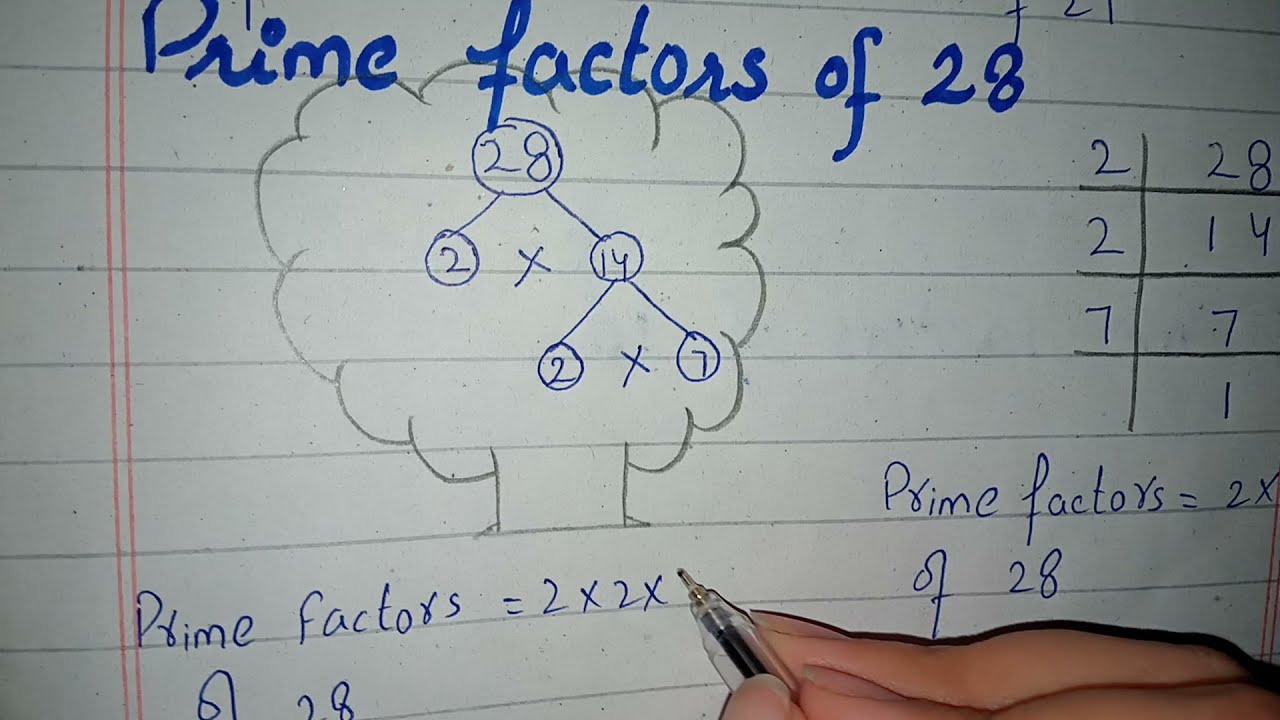 Prime factors of 28
28
2 × 14
2 × 7
2 | 28
2 | 14
7 | 7
1
Prime factors = 2×
of 28
Prime factors = 2×2×
of 28